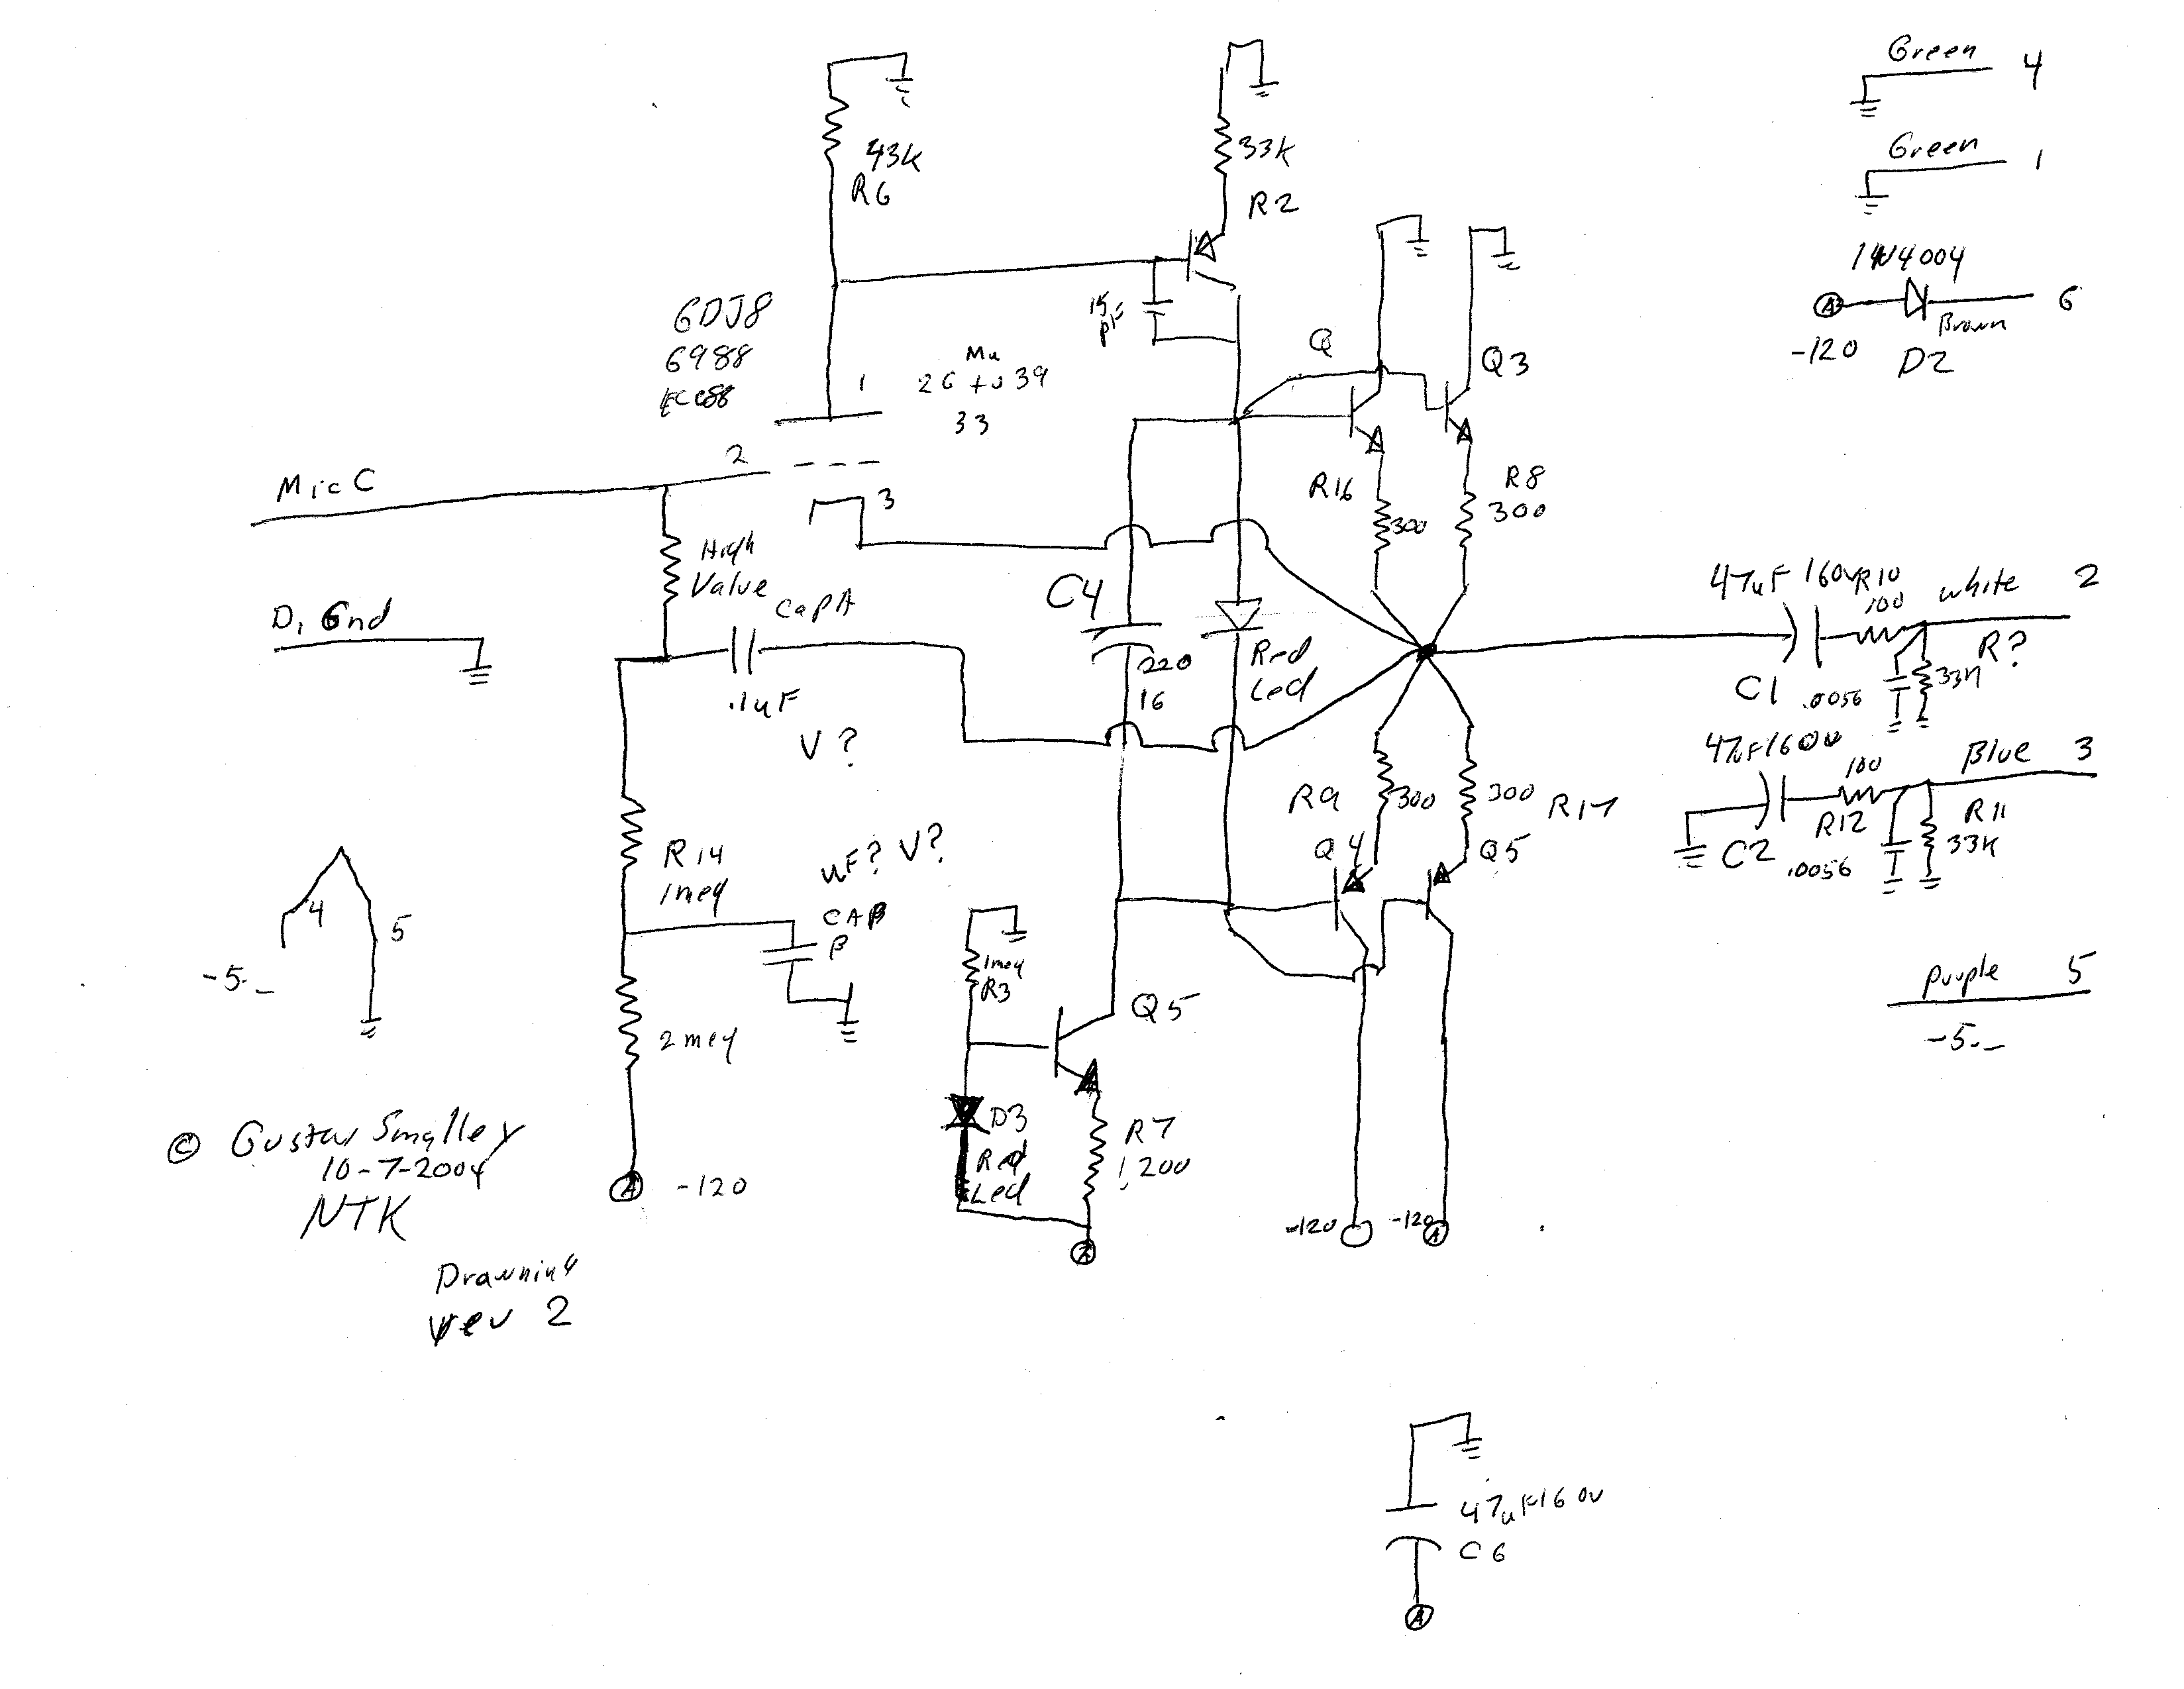 43K
R6
33K
R2
Green 4
Green 1
1N4004
A
6
Brown
-120
D2
6DJ8
6988
ECC88
1
Mu
26 to 39
33
15
pF
Q
Q3
2
3
Mic C
R16
300
R8
300
High
Value
D, Gnd
CapA
.1uF
V?
C4
220
16
Red
Led
47uF 160v
R10
100
white 2
R?
C1
.0056
33K
47uF 160v
100
Blue 3
R12
R11
C2
.0056
33K
R9
300
300
R17
Q4
Q5
R14
1meg
uF? V?
CAP
B
4
5
-5._
1meg
R3
Q5
2 meg
D3
Red
Led
R7
1,200
purple 5
-5._
© Gustav Smalley
10-7-2004
NTK
A
-120
-120
-120
A
A
Drawning
rev 2
47uF 160v
C6
A